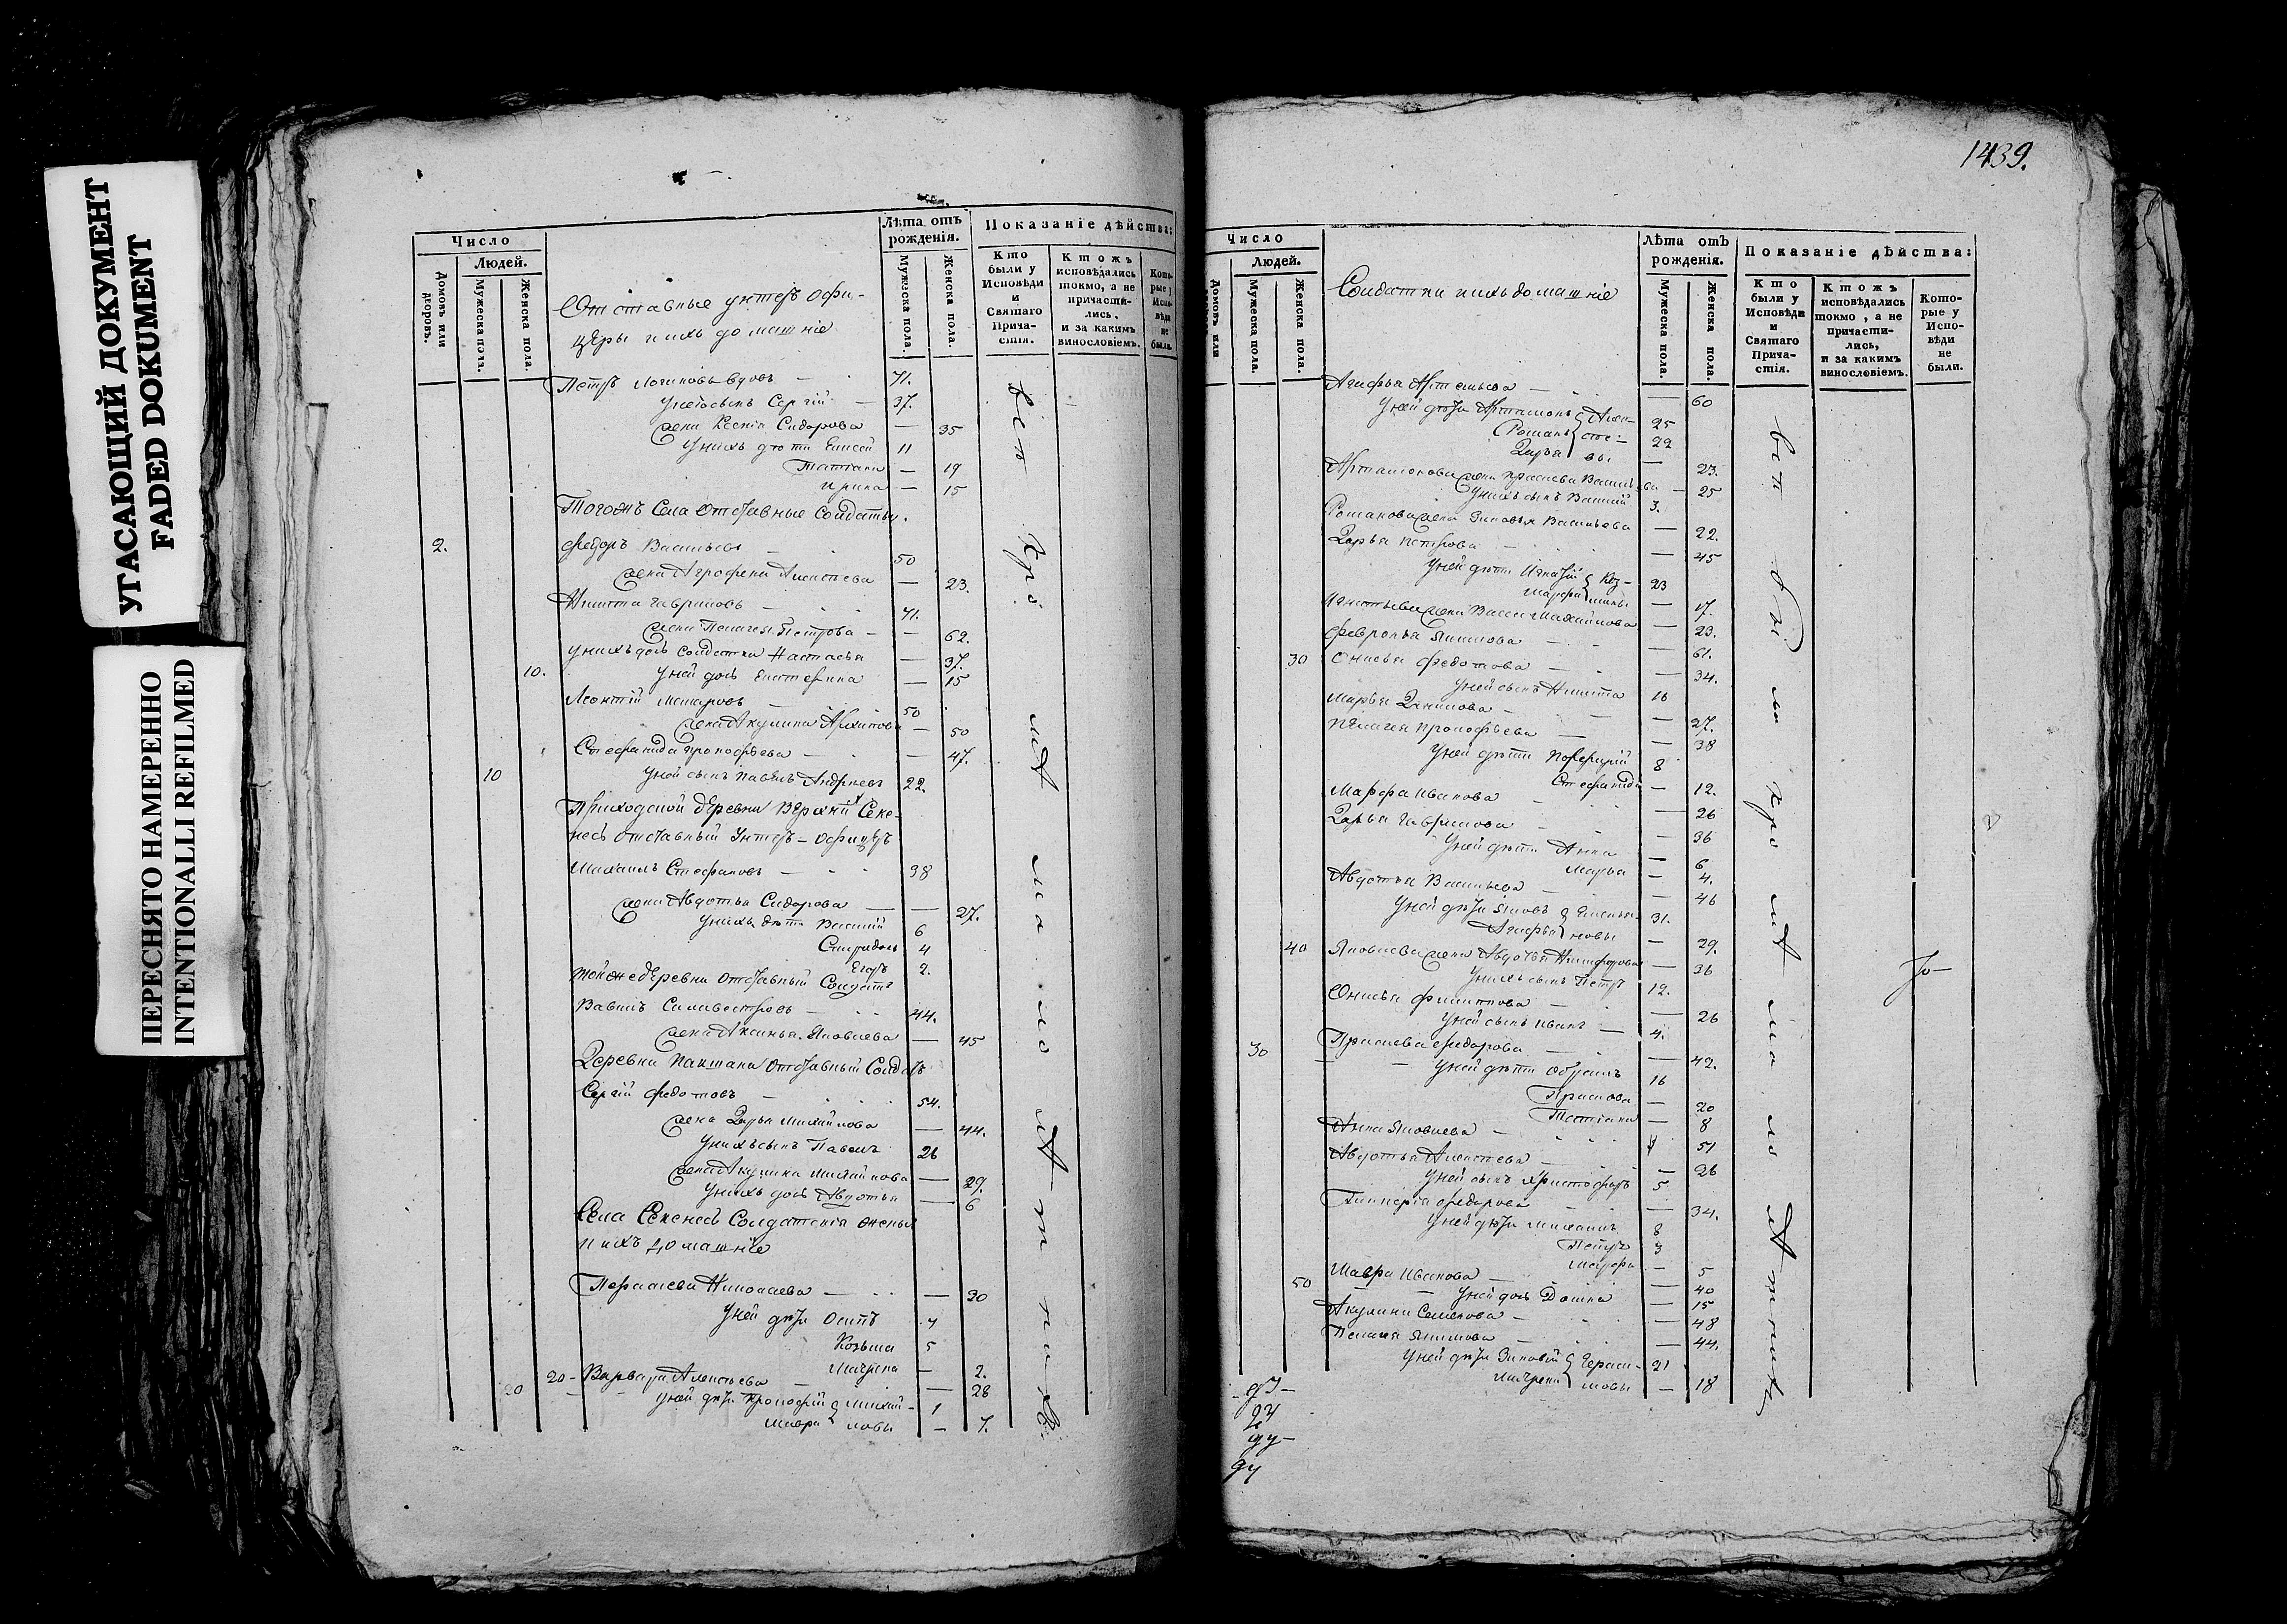 УГАСАЮЩИЙ ДОКУМЕНТ
FADED DOKUMENT
ПЕРЕСНЯТО НАМЕРЕННО
INTENTIONALLI REFILMED
Число
Людей.
Домовъ или дворовъ.
Мужеска пола.
Женска пола.
Лѣта отъ рожденія.
Мужеска пола.
Женска пола.
Показаніе дѣйства:
Кто были у Исповѣди и Святаго Причастія.
Ктожъ исповѣдались токмо, а не причастились, и за какимъ винословіемъ.
Которые у Исповѣди не были.
Отставные унтеръ офи-
церы и ихъ домашніе
Петръ Логиновъ вдовъ — 71.
У него сынъ Сергій — 37.
жена Ксенія Сидорова — 35
У нихъ дѣти Елисей 11
Татіана — 19
Ирина — 15
Тогожъ Села Отставные Солдаты.
2. Федоръ Васильевъ — 50
жена Агрофена Алексѣева — 23.
Никита Гавриловъ — 71.
жена Пелагея Петрова — 62.
У нихъ дочь солдатка Настасья — 37.
10. У ней дочь Екатерина — 15
Леонтій — 50
жена Акулина Архипова — 50
Стефанида Прокофьева — 47.
10 У ней сынъ Павелъ Андреевъ 22.
Приходской деревни Верхній Секе-
несь отставный Унтеръ-Офицеръ
Михаилъ Стефановъ — 38
жена Авдотья Сидорова — 27.
У нихъ дѣти Василій 6
Спиридонъ 4
Егоръ 2.
Той же деревни Отставный Солдатъ
Вавилъ Силивестровъ — 44.
жена Аксинья Яковлева — 45
Деревни Отставный Солдатъ
Сергій Федотовъ — 54.
жена Дарья Михайлова — 44.
У нихъ сынъ Павелъ 26
жена Акулина Михайлова — 29.
У нихъ дочь Авдотья — 6
Села Секенесь Солдатскія жены
и ихъ домашніе
Параскева Николаева — 30
У ней дѣти Осипъ 7
Козьма 5
Матрена — 2.
20 - Варвара Алексѣева — 28
20 У ней дѣти Прокофій Михай- 1
Мавра ловы — 7.
1439.
Число
Людей.
Домовъ или
Мужеска пола.
Женска пола.
Лѣта отъ рожденія.
Мужеска пола.
Женска пола.
Показаніе дѣйства:
Кто были у Исповѣди и Святаго Причастія.
Ктожъ исповѣдались токмо, а не причастились, и за какимъ винословіемъ.
Которые у Исповѣди не были.
Солдатки и ихъ домашніе
Агафья Артемьева — 60
У ней дѣти Артамонъ Алек- 25
Романъ сѣе- 22
Дарья вы — 23.
Артамонова жена Праскева Васильева — 25
У нихъ сынъ Василій 3.
Романова жена Зиновья Васильева — 22.
Дарья Петрова — 45
У ней дѣти Игнатій Коз- 23
Марфа мины — 17.
Игнатьева жена Васса Михайлова — 23.
Февронья Якимова — 61.
30 Онисья Федотова — 34.
У ней сынъ Никита 16
Марья Данилова — 27.
Пелагея Прокофьева — 38
У ней дѣти Порфирій 8
Стефанида — 12.
Марфа Иванова — 26
Дарья Гаврилова — 36
У ней дѣти Анна — 6
Марья — 4.
Авдотья Васильева — 46
У ней дѣти Яковъ Емелья- 31.
Агафья новы — 29.
40 Яковлева жена Авдотья Никифорова — 36
У нихъ сынъ Петръ 12.
Онисья Филиппова — 26
У ней сынъ Иванъ — 4.
30 Праскева Федорова — 42.
У ней дѣти Абрамъ 16
— 20
Татіана — 8
Анна Яковлева — 51
Авдотья Алексѣева — 26
У ней сынъ Христофоръ 5
Гликерія Федорова — 34.
У ней дѣти Михаилъ 8
Петръ 3
Марфа — 5
50 Мавра Иванова — 40
У ней дочь Домна — 15
Акулина Семенова — 48
Пелагея Якимова — 44.
У ней дѣти Зиновій Гераси- 21
Матрена мовы — 18